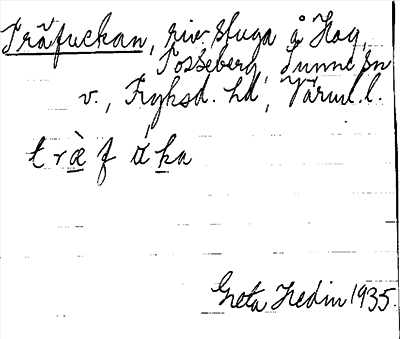 Träfuckan, riv. stuga å Hag,
Posseberg, Sunne sn
v., Fryksd. hd, Värml. l.
træ̀f ɯ́ka
Greta Hedin 1935.